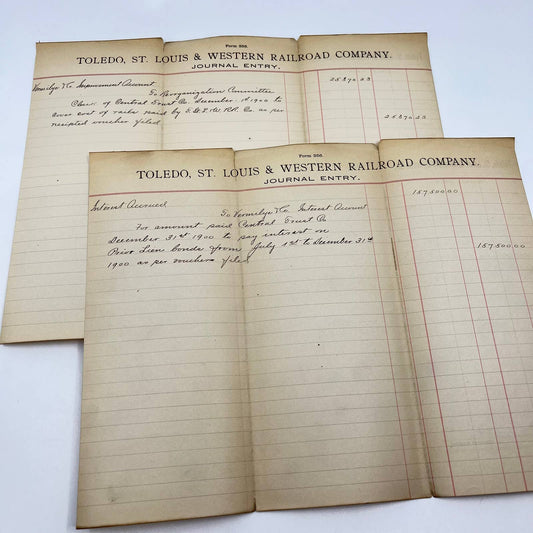 Form 266.
TOLEDO, ST. LOUIS & WESTERN RAILROAD COMPANY.
JOURNAL ENTRY.
Vermilye & Co Improvement Account
To Reorganization Committee
Chas. of Central Trust Co. December 1st 1900 to
cover cost of rails paid by T. St. L. & W. R.R. Co. as per
receipted voucher filed
Form 266.
TOLEDO, ST. LOUIS & WESTERN RAILROAD COMPANY.
JOURNAL ENTRY.
Interest Accrued 157,500.00
To Vermilye & Co Interest Account 157,500.00
For amount paid Central Trust Co
December 31st 1900 to pay interest on
Prior Lien bonds from July 1st to December 31st
1900 as per vouchers filed